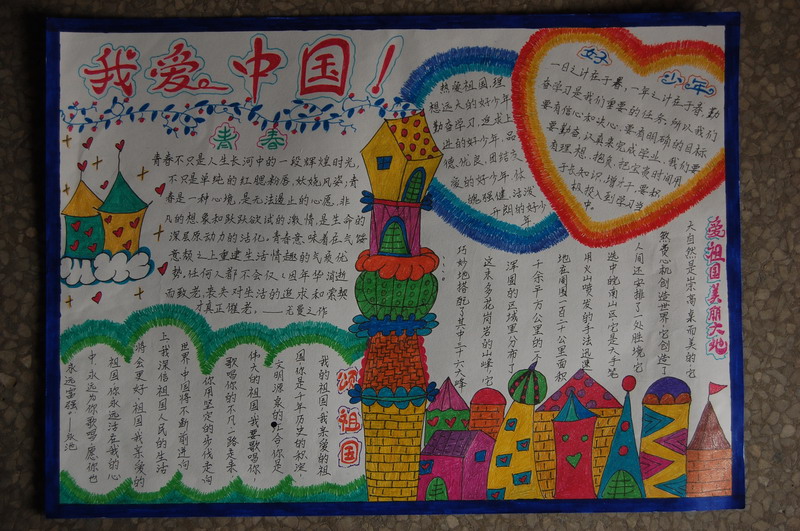 我爱中国！
青春
青春不只是人生长河中的一段辉煌时光,
不只是单纯的红腮粉唇、妖娆风姿;青
春是一种心境,是无法遏止的心愿,非
凡的想象和跃跃欲试的激情,是生命的
深层原动力的活化。青春意味着在气馁
衰颓之上重建生活情趣的气质优
势,任何人都不会仅仅因年华消逝
而致老,丧失对生活的追求和索契
才真正催老。
热爱祖国,理
想远大的好少年
勤奋学习,追求上
进的好少年,品
德优良,团结友
爱的好少年,体
魄强健,活泼
开朗的好少
年
好少年
一日之计在于春,一年之计在于春,勤
奋学习是我们重要的任务,所以我们
要有信心和决心,要有明确的目标
要勤奋,认真来完成学业,我们要
有理想、抱负,把宝贵时间用
于长知识,增才干,要积
极投入到学习当
中。
爱祖国美丽大地
大自然是崇高卓而美的它
煞费心机创造世界它创造了
人间还安排了一处胜境它
选中皖南山区它是大手笔
用火山喷发的手法迅速
地在周围一百二十公里面积
千余平方公里的一个
浑圆的区域里分布了
这末多花岗岩的山峰它
巧妙地搭配了其中三十六大峰
颂祖国
我的祖国,我亲爱的祖
国你是千年历史的积淀,
文明源泉的上合你是
伟大的祖国,我要歌唱你,
歌唱你的不凡一路走来
你用坚实的步伐走向
世界中国将不断前进向
上我深信祖国人民的生活
将会更好,祖国,我亲爱的
祖国你永远活在我的心
中,永远为你歌唱,愿你也
永远富强!